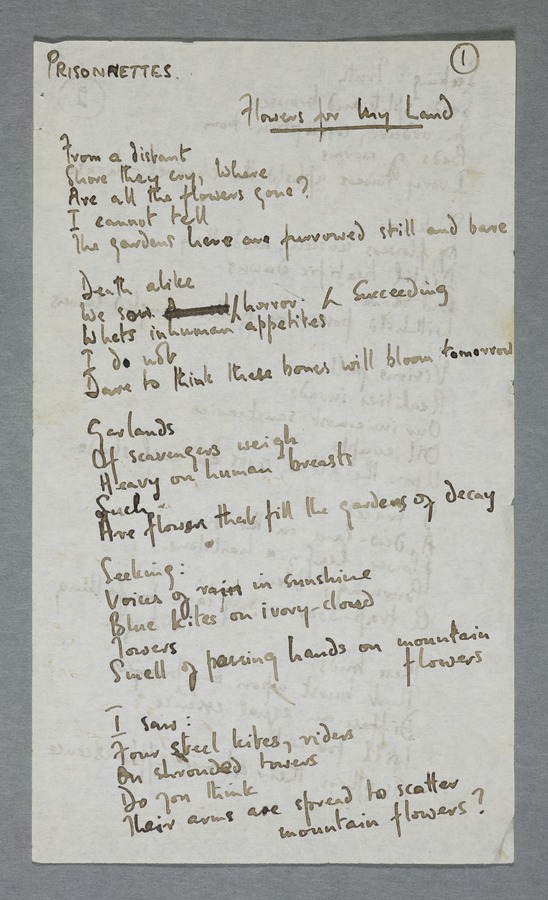 PRISONNETTES.
1
Flowers for My Land
From a distant
Shore they cry, Where
Are all the flowers gone?
I cannot tell
The gardens here are furrowed still and bare
Death alike
We sow. /horror. / Succeeding
Whets inhuman appetites
I do not
Dare to think these bones will bloom tomorrow
Garlands
Of scavengers weigh
Heavy on human breasts
Such
Are flowers that fill the gardens of decay
Seeking:
Voices of rain in sunshine
Blue kites on ivory-cloud
Towers
Smell of passing hands on mountain
flowers
I saw:
Four steel kites, riders
On shrouded towers
Do you think
Their arms are spread to scatter
mountain flowers?